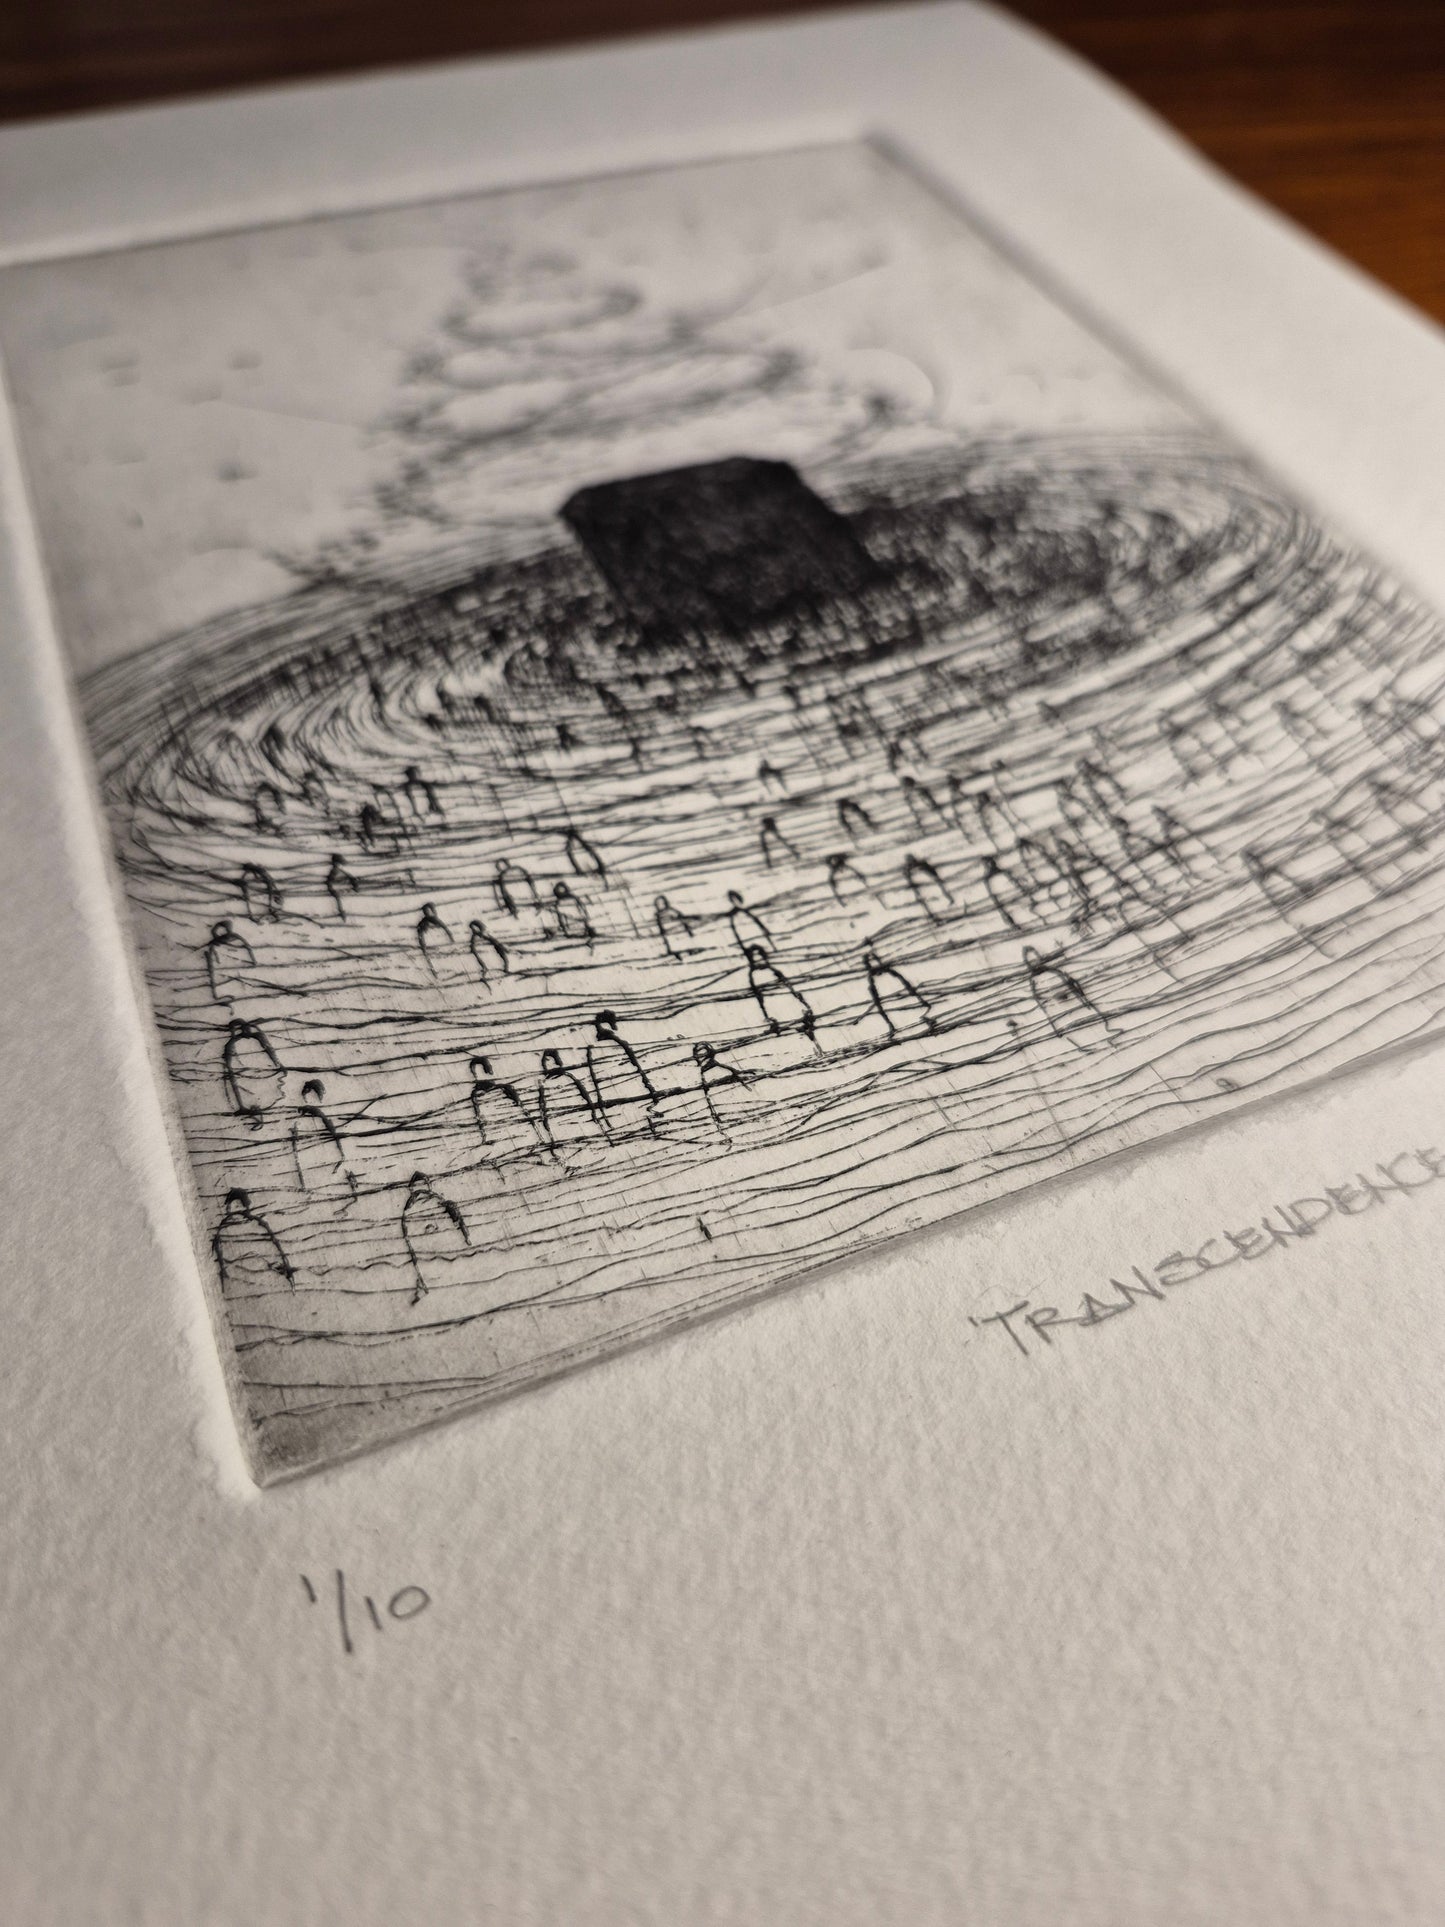 'TRANSCENDENCE
1/10